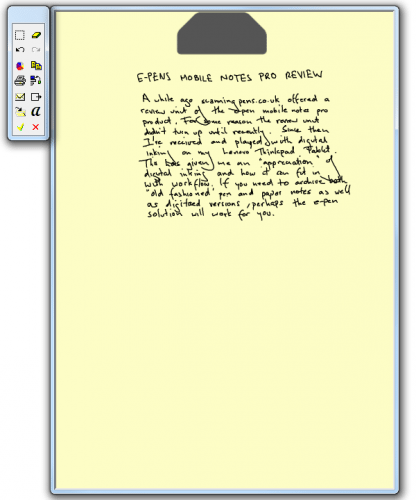 E-PENS MOBILE NOTES PRO REVIEW
A while ago scanningpens.co.uk offered a
review unit of the e-pen mobile notes pro
product. For some reason the review unit
didn't turn up until recently. Since then
I've received and played with digital
inking on my Lenovo Thinkpad Tablet.
This has given me an "appreciation" of
digital inking and how it can fit in
with workflow. If you need to archive both
"old fashioned" pen and paper notes as well
as digitized versions, perhaps the e-pen
solution will work for you.
a